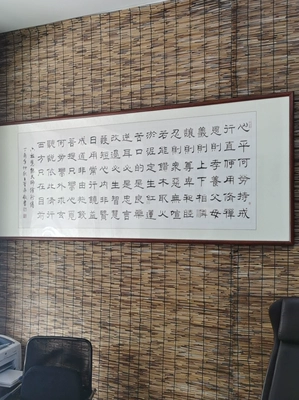 心平何勞持戒
行直何用脩禪
恩則孝養父母
義則上下相憐
讓則尊卑和睦
忍則衆惡無喧
若能鑽木取火
淤泥定生紅蓮
苦口的是良藥
逆耳必是忠言
改過必生智慧
護短心內非賢
日用常行饒益
成道非由施錢
菩提只向心覓
何勞向外求玄
聽說依此脩行
西方只在目前